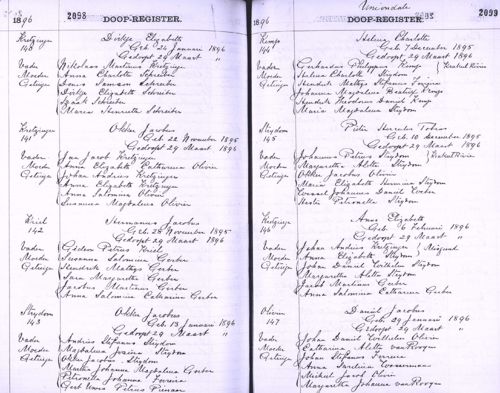 2098
DOOP-REGISTER.
1896
Kretzinger
Dirkje Elizabeth
140
Geb. 24 Januari 1896
Gedoopt 29 Maart "
Vader
Nikolaas Martinus Kretzinger
Moeder
Anna Charlotte Schreiber
Getuigen
Dirkje Elizabeth Schreiber
Izaak Schreiber
Maria Henrietta Schreiber
Kretzinger
Okkie Jacobus
141
Geb. 22 November 1895
Gedoopt 29 Maart 1896
Vader
Jan Jacob Kretzinger
Moeder
Anna Elizabeth Catharina Olivier
Getuigen
Johan Andries Kretzinger
Anna Elizabeth Kretzinger
Anna Salomina Olivier
Susanna Magdalena Olivier
Kriel
Hermanus Jacobus
142
Geb. 28 November 1895
Gedoopt 29 Maart 1896
Vader
Gideon Petrus Kriel
Moeder
Susanna Salomina Gerber
Getuigen
Hendrik Mathys Gerber
Anna Margaretha Gerber
Jacobus Martinus Gerber
Anna Salomina Catharina Gerber
Strydom
Okkie Jacobus
143
Geb. 13 Januari 1896
Gedoopt 29 Maart "
Vader
Andries Stefanus Strydom
Moeder
Magdalena Strydom
Getuigen
Okkie Jacobus Strydom
Martha Johanna Magdalena Gerber
Petronella Johanna Ferreira
Pienaar
Uniondale
2099
DOOP-REGISTER.
1896
144
Helena Charlotte
Geb. 7 December 1895
Gedoopt 29 Maart 1896
Vader
Gerhardus Philippus
Moeder
Helena Charlotte Strydom
Getuigen
Hendrik Mathys Stefanus
Johanna Magdalena
Hendrik Theodorus Daniel
Maria Magdalena Strydom
Strydom
Tobias
145
Geb. 10 December 1895
Gedoopt 29 Maart 1896
Vader
Johannes Petrus Strydom
Moeder
Margaretha Aletta Strydom
Getuigen
Okkie Jacobus Olivier
Maria Elizabeth Hermina Strydom
Johannes Daniel
Hester Petronella Strydom
Kretzinger
Anna Elizabeth
146
Geb. 6 Februari 1896
Gedoopt 29 Maart "
Vader
Johan Andries Kretzinger
Moeder
Anna Elizabeth Strydom
Getuigen
Johan Daniel Wilhelm Strydom
Margaretha Aletta Strydom
Jacob Martinus Gerber
Anna Salomina Catharina Gerber
Olivier
Daniel Jacobus
147
Geb. 29 Januari 1896
Gedoopt 29 Maart "
Vader
John Daniel Wilhelm Olivier
Moeder
Catharina Aletta van Rooyen
Getuigen
Johan Stefanus Ferreira
Anna Carolina
Michiel Jacob Olivier
Margaretha Johanna van Rooyen